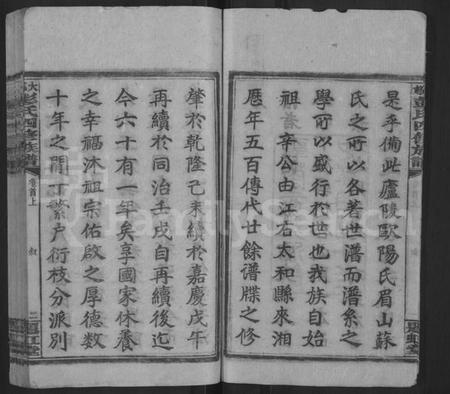 是乎備此廬陵歐陽氏眉山蘇
氏之所以各著世譜而譜系之
學所以盛行於世也我族自始
祖辛公由江右太和縣來湘
歷年五百傳代廿餘譜牒之修
肇於乾隆己未續於嘉慶戊午
再續於同治壬戌自再續後迄
今六十有一年矣享國家休養
之幸福沐祖宗佑啟之厚德數
十年之間丁繁戶衍枝分派別
彭氏四修族譜
卷首上
敘
二
FamilySearch